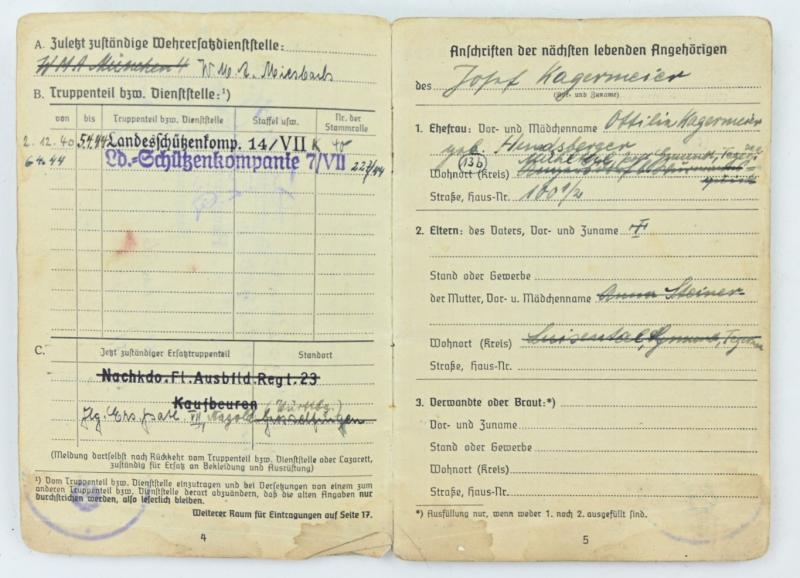 A. Zuletzt zuständige Wehrersatzdienststelle:
W M A München II W. M. A. Miesbach
B. Truppenteil bzw. Dienststelle:¹)
von bis Truppenteil bzw. Dienststelle Staffel usw. Nr. der Stammrolle
2.12.40 5.4.44 Landesschützenkomp. 14/VII K 40
6.4.44 Ld.-Schützenkompanie 7/VII
C. Jetzt zuständiger Ersatztruppenteil Standort
Nachkdo.Fl.Ausbild.Regt.23
Kaufbeuren
VII, Nagold
(Meldung dortselbst nach Rückkehr vom Truppenteil bzw. Dienststelle oder Lazarett,
zuständig für Ersatz an Bekleidung und Ausrüstung)
¹) Vom Truppenteil bzw. Dienststelle einzutragen und bei Versetzungen von einem zum
anderen Truppenteil bzw. Dienststelle derart abzuändern, daß die alten Angaben nur
durchstrichen werden, also leserlich bleiben.
Weiterer Raum für Eintragungen auf Seite 17.
4
Anschriften der nächsten lebenden Angehörigen
des Josef Kagermeier
(Vor- und Zuname)
1. Ehefrau: Vor- und Mädchenname Ottilie Kagermeier
geb. Hundsberger
(13b)
Wohnort (Kreis)
Straße, Haus-Nr. 100 1/2
2. Eltern: des Vaters, Vor- und Zuname
Stand oder Gewerbe
der Mutter, Vor- u. Mädchenname Anna Steiner
Wohnort (Kreis) Luisental, Gmund, Tegernsee
Straße, Haus-Nr.
3. Verwandte oder Braut:*)
Vor- und Zuname
Stand oder Gewerbe
Wohnort (Kreis)
Straße, Haus-Nr.
*) Ausfüllung nur, wenn weder 1. noch 2. ausgefüllt sind.
5